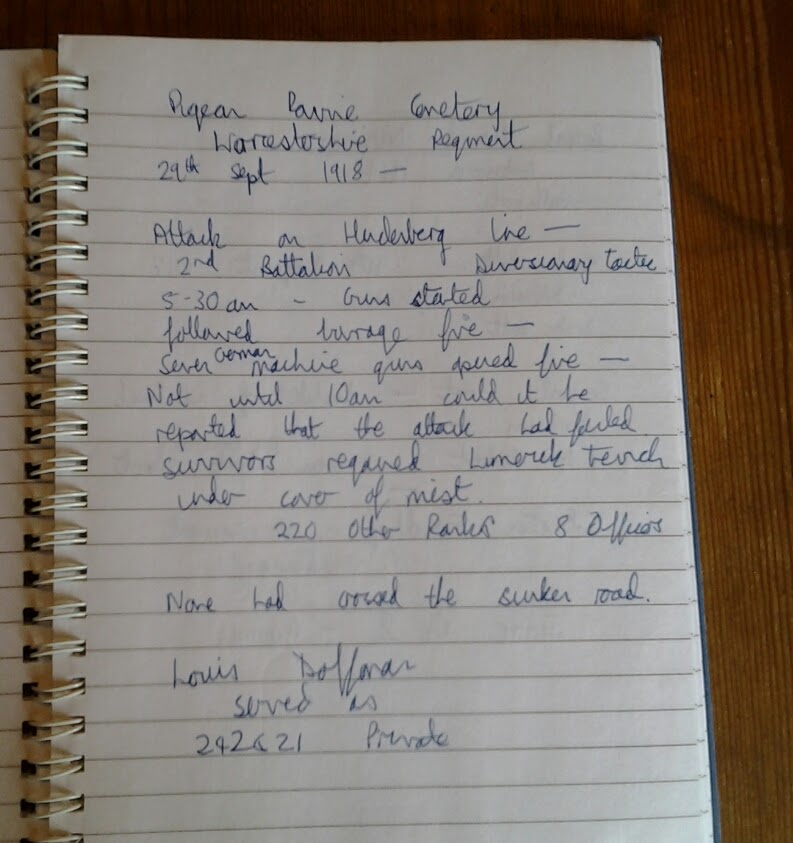 Pigeon Ravine Cemetery
Worcestershire Regiment
29th Sept 1918 —
Attack on Hindenberg line —
2nd Battalion Diversionary tactic
5-30 am - Guns started
followed barrage fire —
Seven German machine guns opened fire —
Not until 10am could it be
reported that the attack had failed
survivors regained Limerick Trench
under cover of mist.
220 Other Ranks 8 Officers
None had crossed the sunken road.
Louis
served as
Private